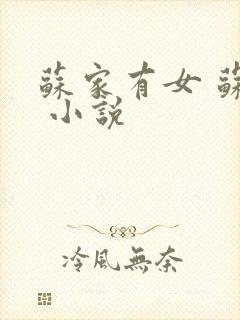 蘇家有女 蘇
小說
冷風無奈